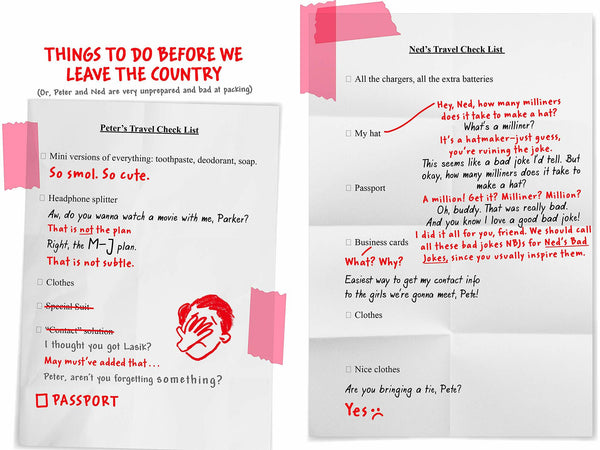 THINGS TO DO BEFORE WE
LEAVE THE COUNTRY
(Or, Peter and Ned are very unprepared and bad at packing)
Peter's Travel Check List
Mini versions of everything: toothpaste, deodorant, soap.
So smol. So cute.
Headphone splitter
Aw, do you wanna watch a movie with me, Parker?
That is not the plan
Right, the M-J plan.
That is not subtle.
Clothes
Special Suit
"Contact" solution
I thought you got Lasik?
May must've added that...
Peter, aren't you forgetting something?
PASSPORT
Ned's Travel Check List
All the chargers, all the extra batteries
My hat
Hey, Ned, how many milliners
does it take to make a hat?
What's a milliner?
It's a hatmaker—just guess,
you're ruining the joke.
This seems like a bad joke I'd tell. But
okay, how many milliners does it take to
make a hat?
A million! Get it? Milliner? Million?
Oh, buddy. That was really bad.
And you know I love a good bad joke!
I did it all for you, friend. We should call
all these bad jokes NBJs for Ned's Bad
Jokes, since you usually inspire them.
Passport
Business cards
What? Why?
Easiest way to get my contact info
to the girls we're gonna meet, Pete!
Clothes
Nice clothes
Are you bringing a tie, Pete?
Yes